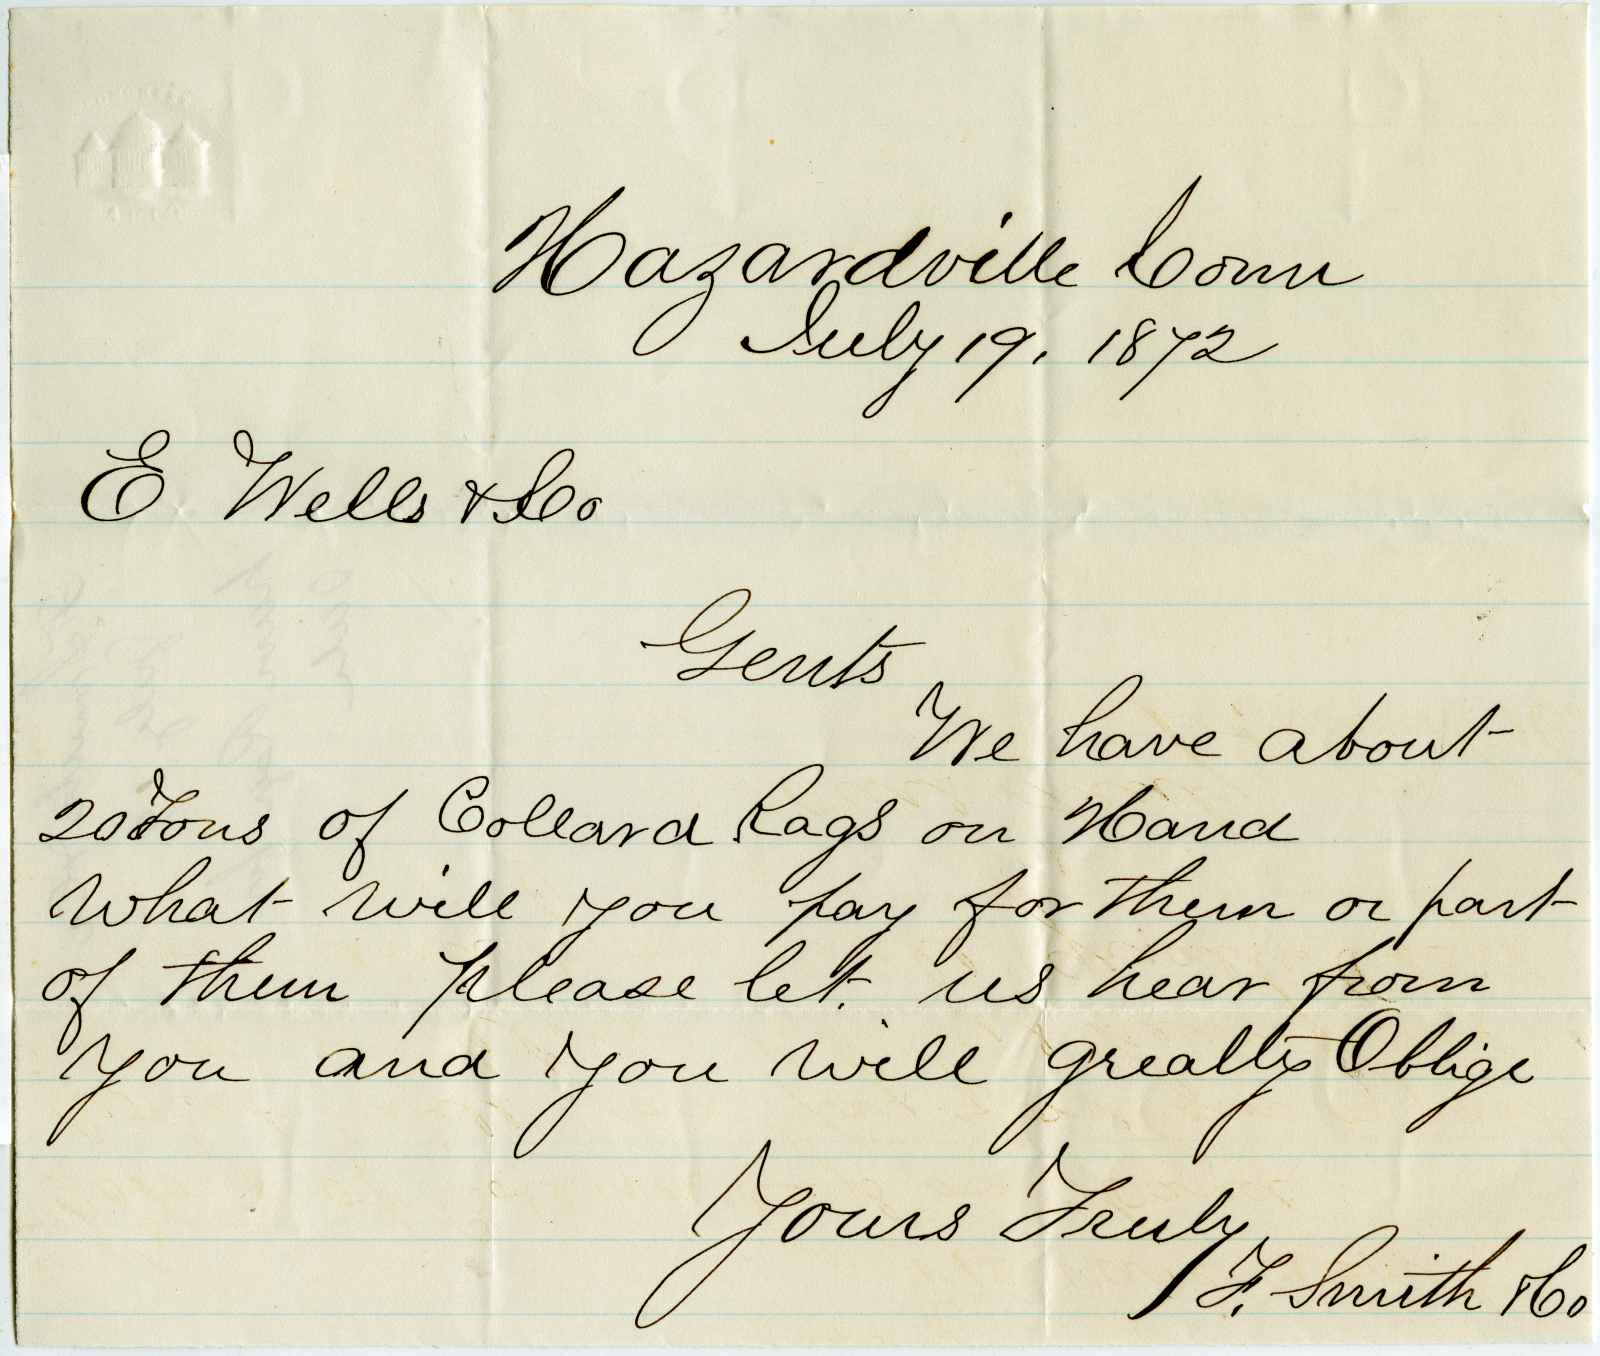 Hazardville Conn
July 19, 1872
E Wells & Co
Gents
We have about
20 Tons of Collard Rags on Hand
What will you pay for them or part
of them please let us hear from
you and you will greatly Oblige
Yours Truly
F. Smith & Co